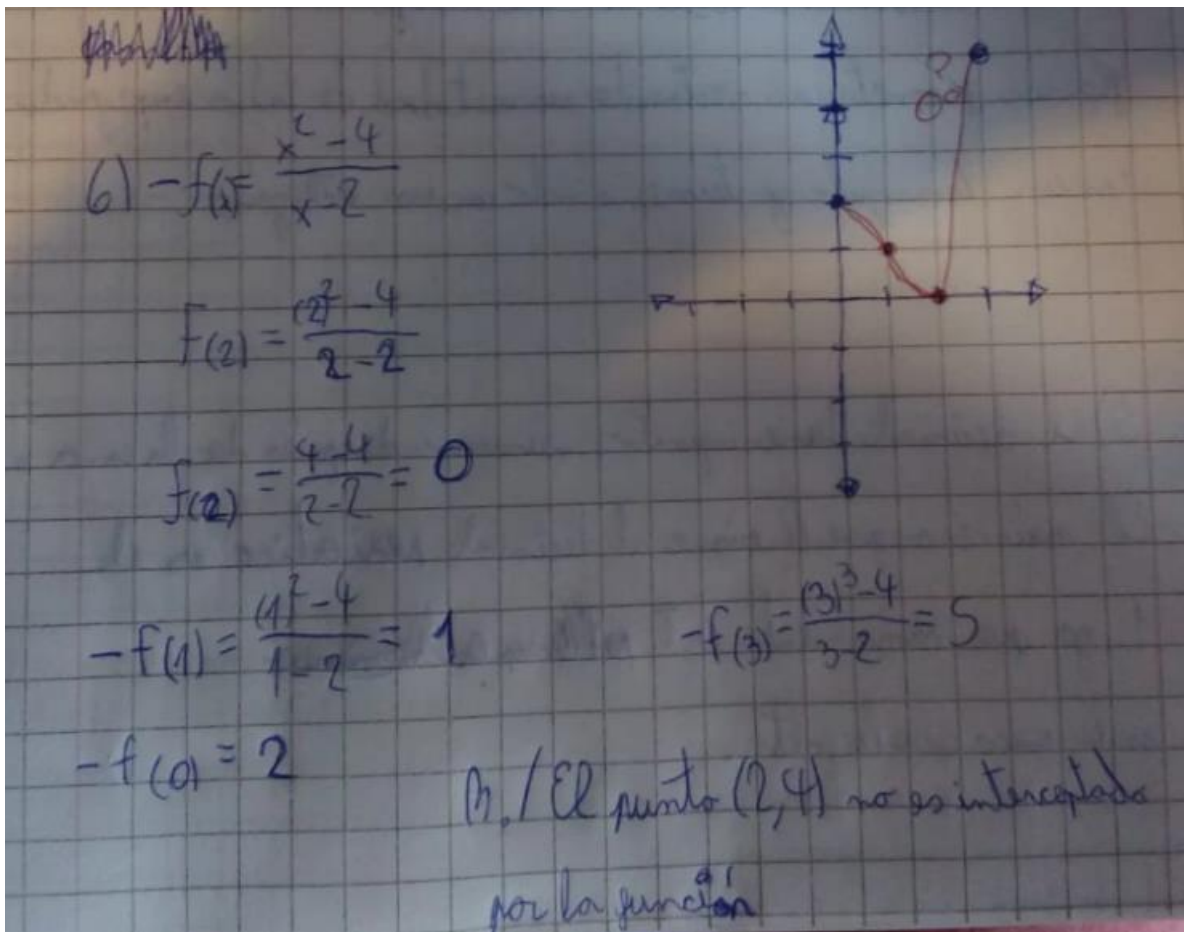 6) -f(x) = x² - 4 / x - 2
F(2) = (2)² - 4 / 2 - 2
f(2) = 4 - 4 / 2 - 2 = 0
-f(1) = (1)² - 4 / 1 - 2 = 1
-f(3) = (3)³ - 4 / 3 - 2 = 5
-f(0) = 2
R./ El punto (2,4) no es interceptado
por la función